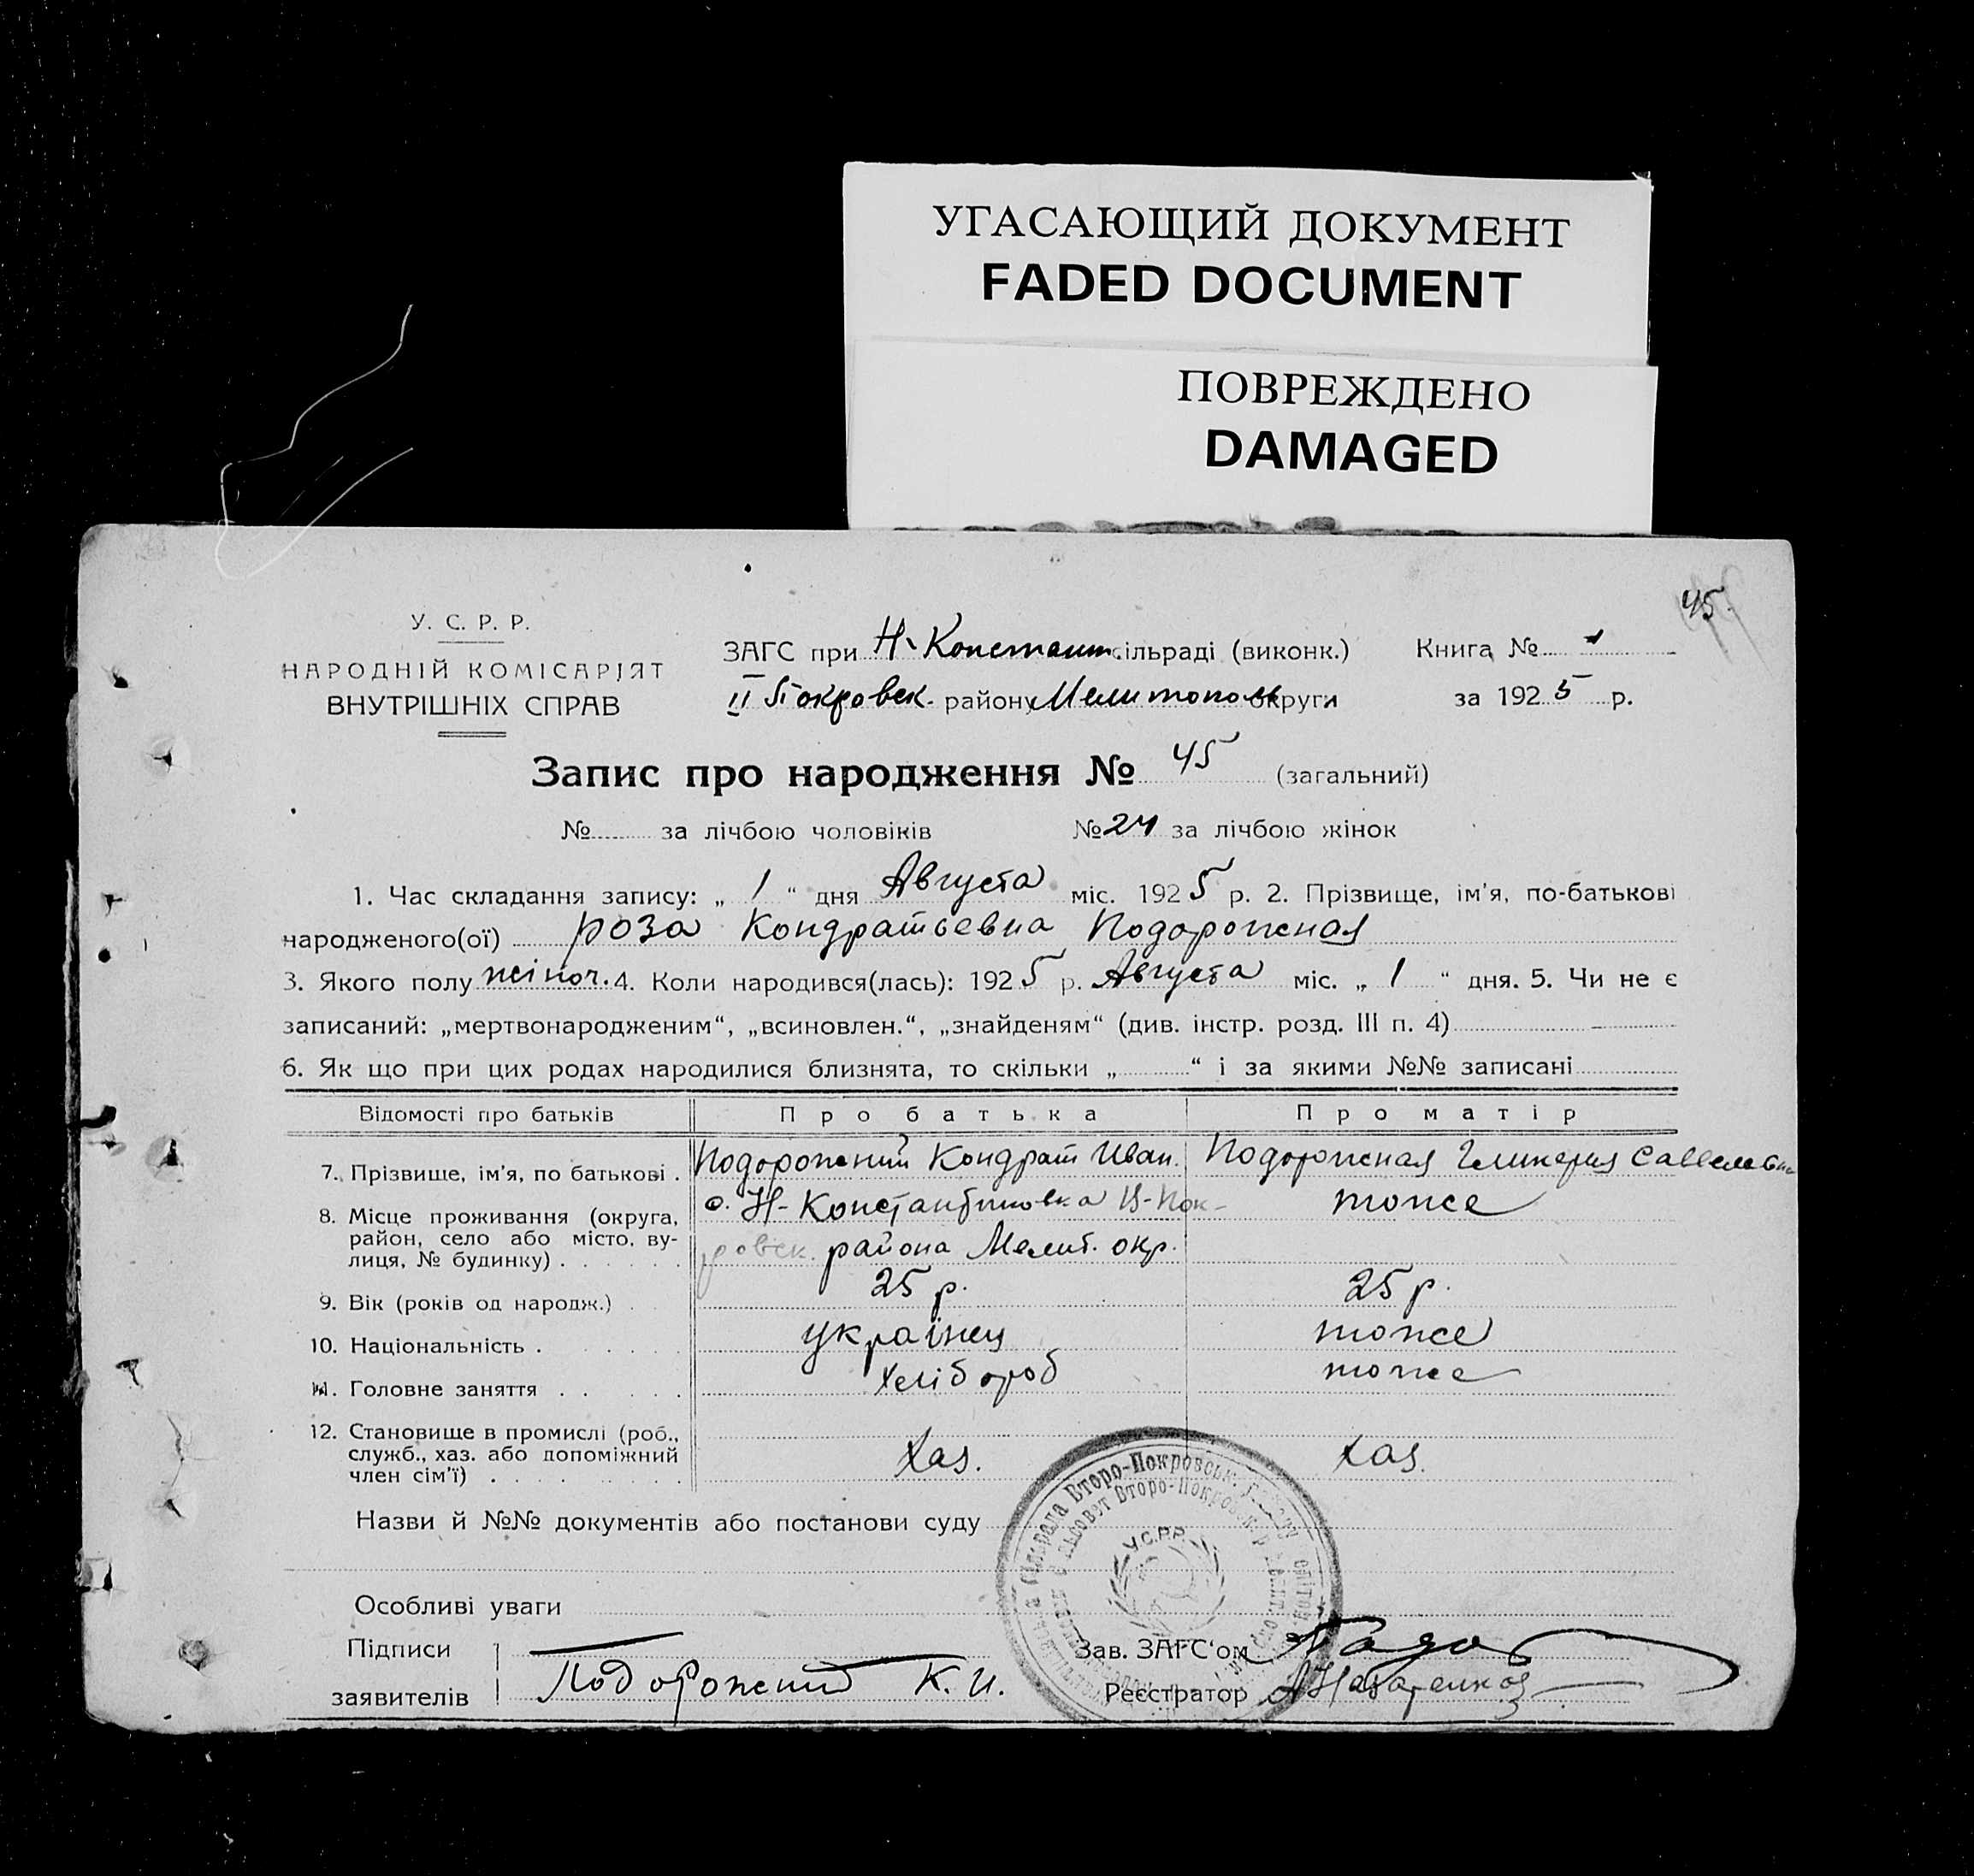 УГАСАЮЩИЙ ДОКУМЕНТ
FADED DOCUMENT
ПОВРЕЖДЕНО
DAMAGED
45.
У. С. Р. Р.
НАРОДНІЙ КОМІСАРІЯТ
ВНУТРІШНІХ СПРАВ
ЗАГС при Н-Констант. сільраді (виконк.)
Книга №
II Покровск. району Мелитополь округи
за 1925 р.
Запис про народження № 45 (загальний)
№ за лічбою чоловіків № 24 за лічбою жінок
1. Час складання запису: „ 1 “ дня Августа міс. 1925 р. 2. Прізвище, ім'я, по-батькові
народженого(ої) роза Кондратьевна Подорожная
3. Якого полу жіноч. 4. Коли народився(лась): 1925 р. Августа міс. „ 1 “ дня. 5. Чи не є
записаний: „мертвонародженим“, „всиновлен.“, „знайденям“ (див. інстр. розд. III п. 4)
6. Як що при цих родах народилися близнята, то скільки „ “ і за якими №№ записані
Відомості про батьків Про батька Про матір
7. Прізвище, ім'я, по батькові . Подорожний Кондрат Иван. Подорожная Гликерия Савелевна
8. Місце проживання (округа, район, село або місто, вулиця, № будинку) . с. Н-Константиновка В-Пок-
ровск. района Мелит. окр. тоже
9. Вік (років од народж.) . 25 р. 25 р.
10. Національність . українец тоже
11. Головне заняття . . хлібороб тоже
12. Становище в промислі (роб.,
служб., хаз. або допоміжний
член сім'ї) . Хаз. Хаз.
Назви й №№ документів або постанови суду
У.С.Р.Р.
Особливі уваги
Підписи
заявителів Подорожний К. И.
Зав. ЗАГС'ом
Реєстратор А Назаренко